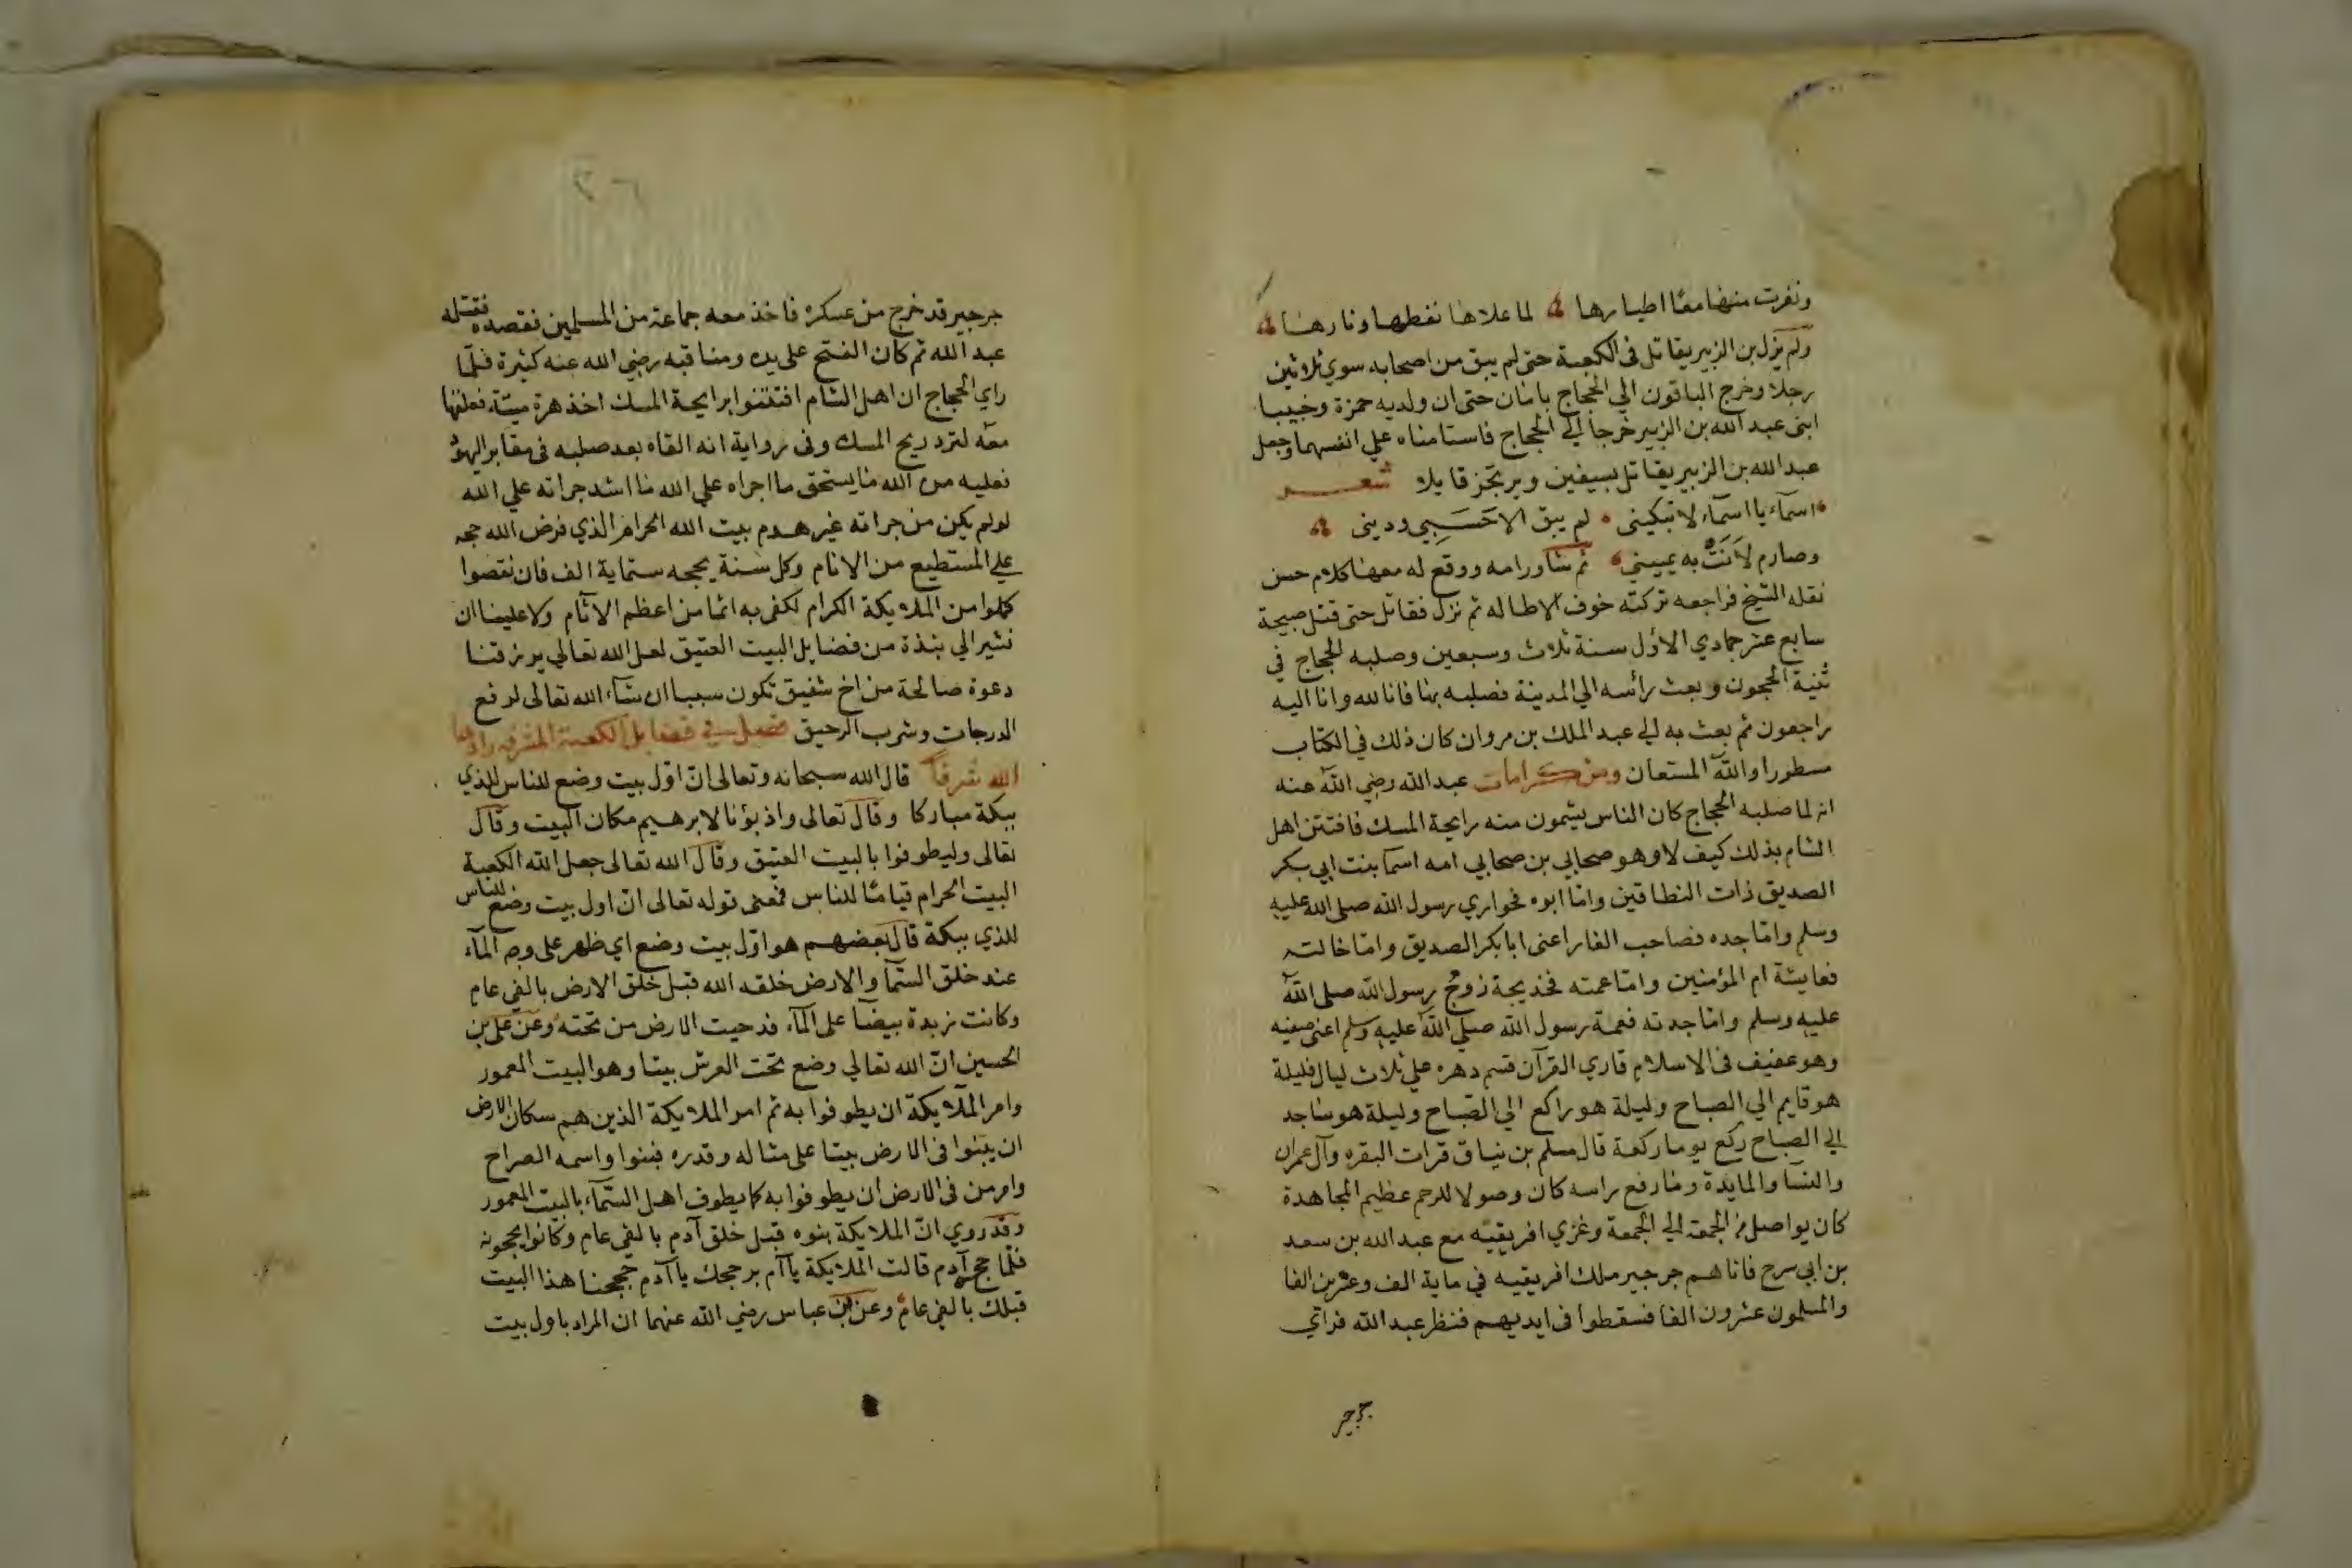 ونفرت منها معًا اطيارها لما علاها نفطها ونارها
ولم يزل بن الزبير يقاتل فى الكعبة حتى لم يبق من اصحابه سوي ثلاثين
رجلا وخرج الباقون الي الحجاج بامان حتى ان ولديه حمزة وخبيبا
ابنى عبد الله بن الزبير خرجا الي الحجاج فاستامناه علي انفسهما وجعل
عبد الله بن الزبير يقاتل بسيفين ويرتجز قايلا شعر
اسمآء يا اسمآء لا تبكينى لم يبق الا حَسَبِي ودينى
وصارم لاَنَتْ به يميني ثم شاور امه ووقع له معها كلام حسن
نقله الشيخ فراجعه تركته خوف الاطاله ثم نزل فقاتل حتى قتل صبيحة
سابع عشر جمادي الاول سنة ثلاث وسبعين وصلبه الحجاج في
ثنية الحجون وبعث رأسه الي المدينة فصلبه بها فانا لله وانا اليه
راجعون ثم بعث به لي عبد الملك بن مروان كان ذلك في الكتاب
مسطورا والله المستعان ومن كرامات عبد الله رضي الله عنه
انه لما صلبه الحجاج كان الناس يشمون منه رايحة المسك فافتتن اهل
الشام بذلك كيف لا وهو صحابي بن صحابي امه اسما بنت ابي بكر
الصديق ذات النطاقين واما ابوه فحواري رسول الله صلى الله عليه
وسلم واما جده فصاحب الغار اعنى ابا بكر الصديق واما خالته
فعايشة ام المؤمنين واما عمته فخديجة زوج رسول الله صلى الله
عليه وسلم واما جدته فعمة رسول الله صلي الله عليه وسلم اعنى صفيه
وهو عفيف فى الاسلام قاري القرآن قسم دهره علي ثلاث ليال فليلة
هو قايم الي الصباح وليلة هو راكع الي الصباح وليلة هو ساجد
الي الصباح ركع يوما ركعة قال مسلم بن نياق قرات البقره وآل عمران
والنسا والمايدة وما رفع راسه كان وصولا للرحم عظيم المجاهدة
كان يواصل من الجمعة الي الجمعة وغزي افريقيه مع عبد الله بن سعد
بن ابي سرح فاتاهم جرجير ملك افريقيه في ماية الف وعشرين الفا
والمسلمون عشرون الفا فسقطوا فى ايديهم فنظر عبد الله فراي
جرجير
٢٦
جرجير قد خرج من عسكره فاخذ معه جماعة من المسلمين فقصده فقتله
عبد الله ثم كان الفتح على يده ومناقبه رضي الله عنه كثيرة فلما
راي الحجاج ان اهل الشام افتتنوا برايحة المسك اخذ هرة ميتة فعلقها
معه لترد ريح المسك وفى رواية انه القاه بعد صلبه فى مقابر اليهود
فعليه من الله ما يستحق ما اجراه علي الله ما اشد جراته علي الله
لو لم يكن من جراته غير هدم بيت الله الحرام الذي فرض الله حجه
علي المستطيع من الانام وكل سنة يحجه ستماية الف فان نقصوا
كملوا من الملايكة الكرام لكفى به اثما من اعظم الاثام ولا علينا ان
نشير الي بنذة من فضايل البيت العتيق لعل الله تعالي يرزقنا
دعوة صالحة من اخ شفيق تكون سببا ان شآء الله تعالى لرفع
الدرجات وشرب الرحيق فصل في فضايل الكعبة المشرفه زادها
الله شرفا قال الله سبحانه وتعالى ان اول بيت وضع للناس للذي
ببكة مباركا وقال تعالى واذ بؤنا لابرهيم مكان البيت وقال
تعالى وليطوفوا بالبيت العتيق وقال الله تعالى جعل الله الكعبة
البيت الحرام قيامًا للناس فمعنى قوله تعالى ان اول بيت وضع للناس
للذي ببكة قال بعضهم هو اول بيت وضع اي ظهر على وجه المآء
عند خلق السمآ والارض خلقه الله قبل خلق الارض بالفي عام
وكانت زبدة بيضآ على المآء فدحيت الارض من تحته وعن على بن
الحسين ان الله تعالي وضع تحت العرش بيتا وهو البيت المعمور
وامر الملايكة ان يطوفوا به ثم امر الملايكة الذين هم سكان الارض
ان يبنوا فى الارض بيتا على مثاله وقدره فبنوا واسمه الصراح
وامر من فى الارض ان يطوفوا به كما يطوف اهل السمآء بالبيت المعمور
وقد روي ان الملايكة بنوه قبل خلق آدم بالفى عام وكانوا يحجونه
فلما حج آدم قالت الملايكة يا آم بر حجك يا آدم حججنا هذا البيت
قبلك بالفى عام وعن بن عباس رضي الله عنهما ان المراد باول بيت